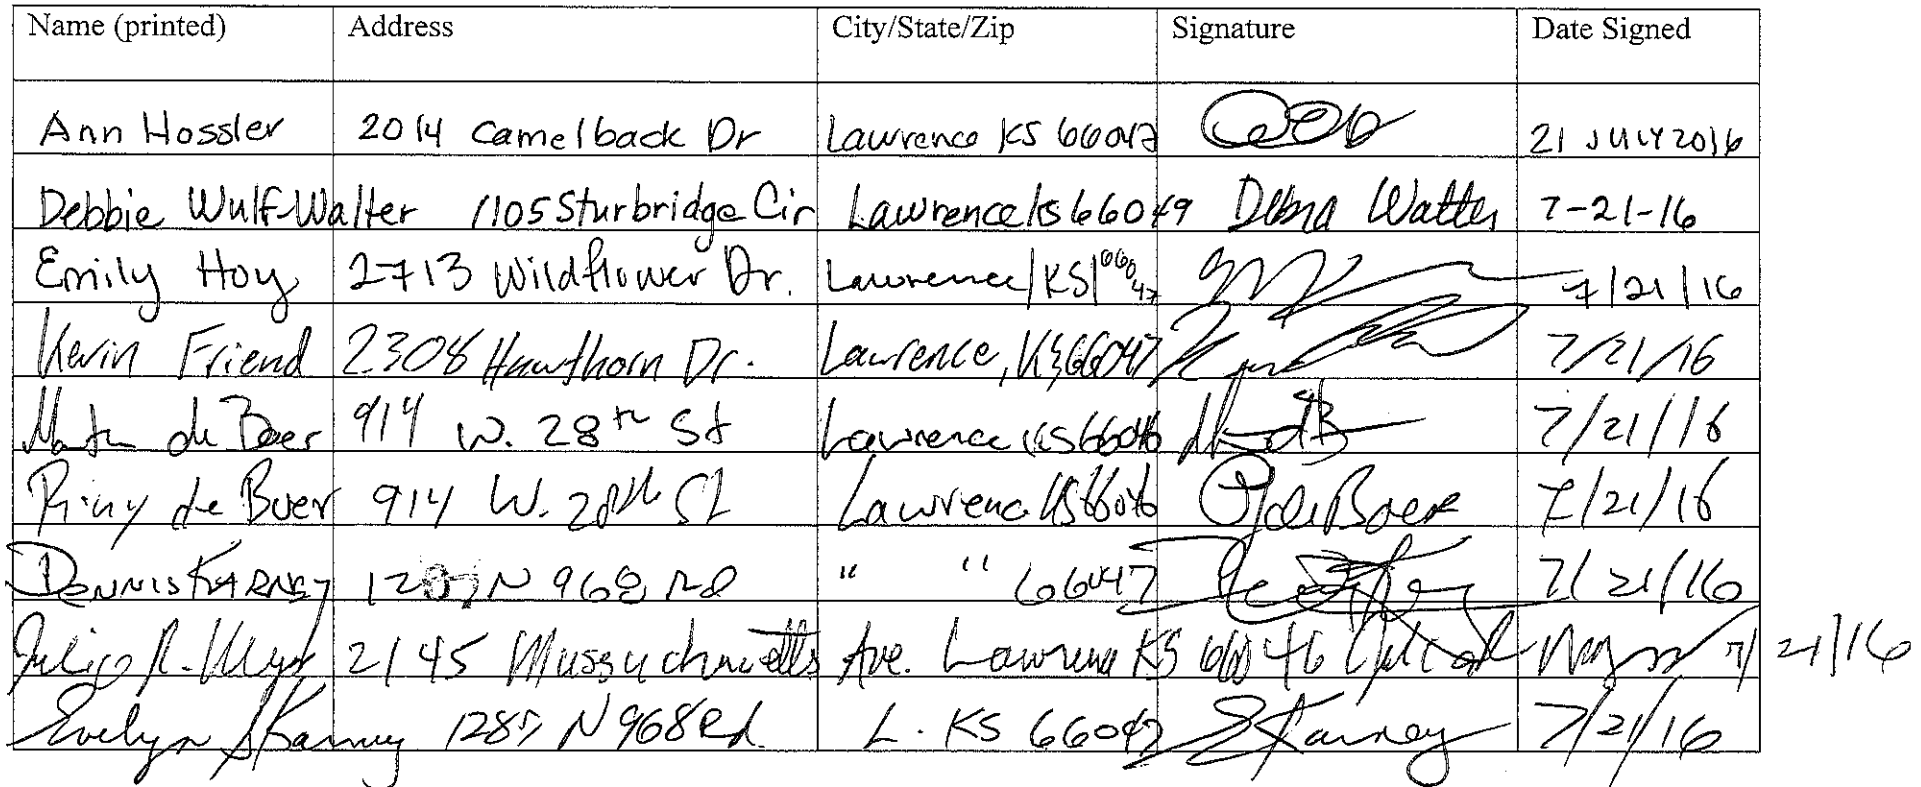 Name (printed) Address City/State/Zip Signature Date Signed
Ann Hossler 2014 Camelback Dr Lawrence KS 66047 21 JULY 2016
Debbie Wulf-Walter 1105 Sturbridge Cir Lawrence KS 66049 Debra Walter 7-21-16
Emily Hoy 2713 Wildflower Dr. Lawrence/KS/66047 7/21/16
Kevin Friend 2308 Hawthorn Dr. Lawrence, KS 66047 7/21/16
de Boer 914 W. 28th St Lawrence KS 66046 7/21/16
de Boer 914 W. 28th St Lawrence KS 66046 de Boer 7/21/16
DENNIS KARNEY 1287 N 968 Rd " " 66047 7/21/16
R. 2145 Massachusetts Ave. Lawrence KS 66046 7/21/16
Evelyn Karney 1287 N 968 Rd. L. KS 66047 E Karney 7/21/16